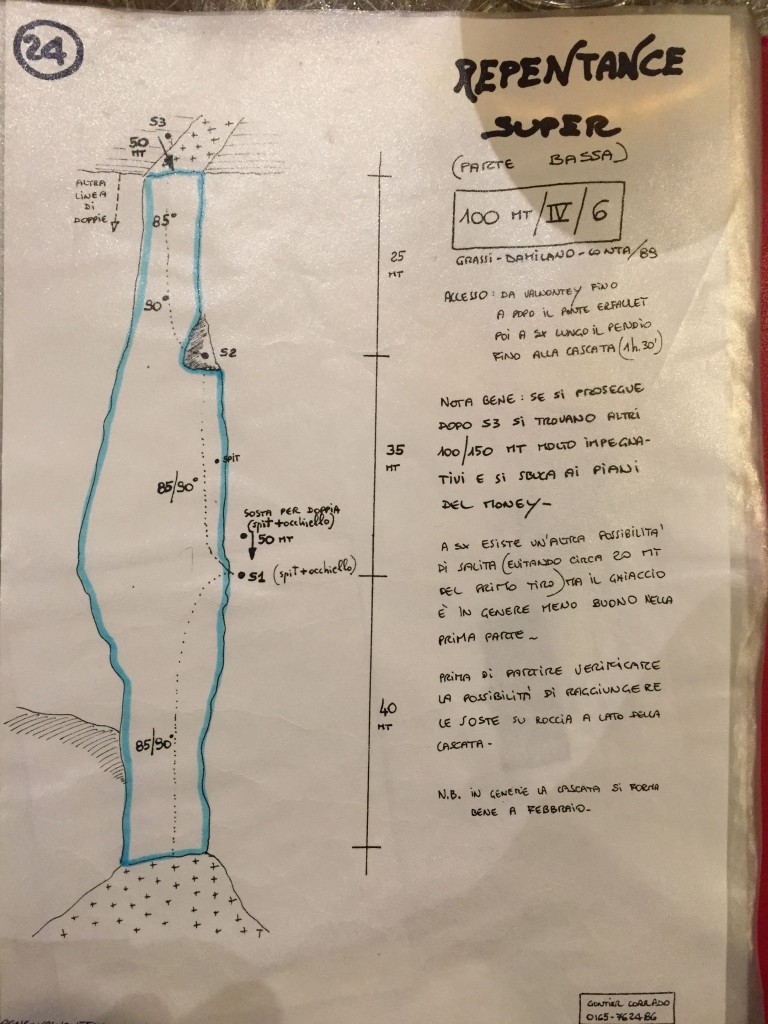 24
REPENTANCE
SUPER
(PARTE BASSA)
100 MT/IV/6
GRASSI-DAMILANO-CONTA/89
ACCESSO: DA VALNONTEY FINO
A DOPO IL PONTE ERFAULET
POI A SX LUNGO IL PENDIO
FINO ALLA CASCATA (1h.30')
NOTA BENE: SE SI PROSEGUE
DOPO S3 SI TROVANO ALTRI
100/150 MT MOLTO IMPEGNA-
TIVI E SI SBUCA AI PIANI
DEL MONEY-
A SX ESISTE UN'ALTRA POSSIBILITA'
DI SALITA (EVITANDO CIRCA 20 MT
DEL PRIMO TIRO) MA IL GHIACCIO
È IN GENERE MENO BUONO NELLA
PRIMA PARTE-
PRIMA DI PARTIRE VERIFICARE
LA POSSIBILITÀ DI RAGGIUNGERE
LE SOSTE SU ROCCIA A LATO DELLA
CASCATA-
N.B. IN GENERE LA CASCATA SI FORMA
BENE A FEBBRAIO-
S3
50
MT
ALTRA
LINEA
DI
DOPPIE
85°
90°
S2
25
MT
SPIT
85/90°
35
MT
SOSTA PER DOPPIA
(spit+occhiello)
50 MT
S1 (spit+occhiello)
85/90°
40
MT
GONTIER CORRADO
0165-762486